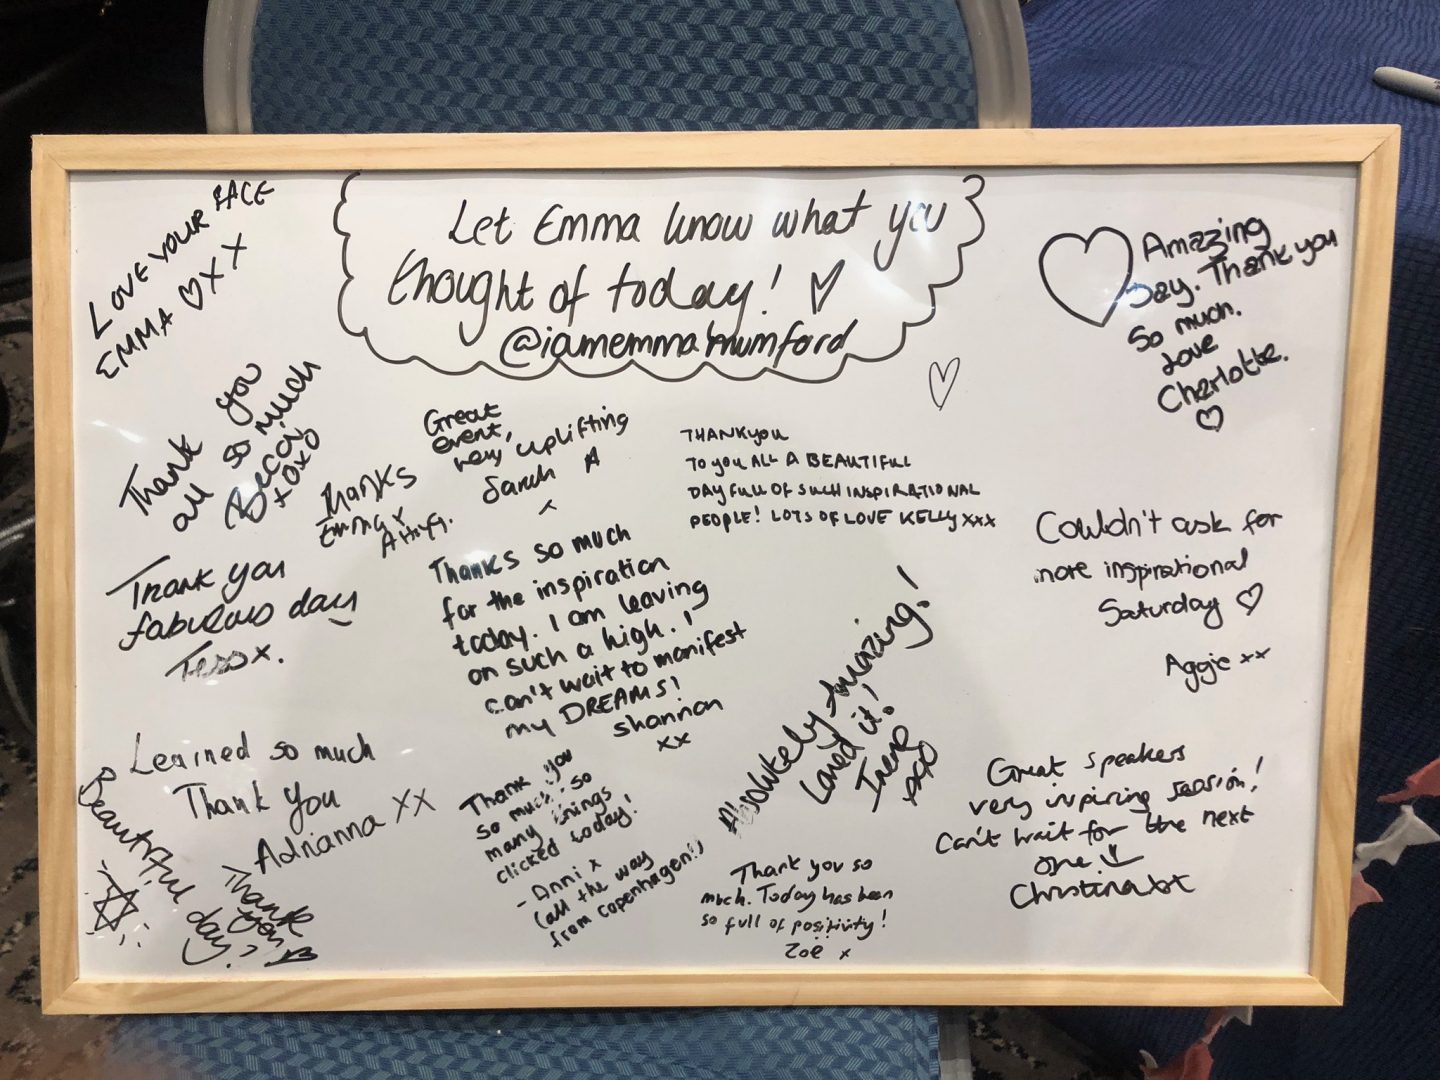 Let Emma know what you
thought of today! ♡
@iamemmamumford
LOVE YOUR FACE
EMMA ♡XX
Thank you
all so much
Becca
xoxo
Thanks
Emma x
Great
event,
very uplifting
Sarah A
x
THANKYOU
TO YOU ALL A BEAUTIFUL
DAY FULL OF SUCH INSPIRATIONAL
PEOPLE! LOTS OF LOVE KELLY xxx
Amazing
Day. Thank you
so much.
Love
Charlotte.
♡
Thank you
fabulous day
Tess x.
Thanks so much
for the inspiration
today. I am leaving
on such a high. I
can't wait to manifest
my DREAMS!
shannon
xx
Couldn't ask for
more inspirational
Saturday ♡
Aggie xx
Absolutely Amazing!
Loved it!
Irene
xxo
Learned so much
Thank you
Adrianna XX
Beautiful day!
Thank
you
Thank you
so much, so
many things
clicked today!
- Anni x
(all the way
from Copenhagen!)
Thank you so
much. Today has been
so full of positivity!
Zoë x
Great speakers
very inspiring session!
Can't wait for the next
one
Christina xx